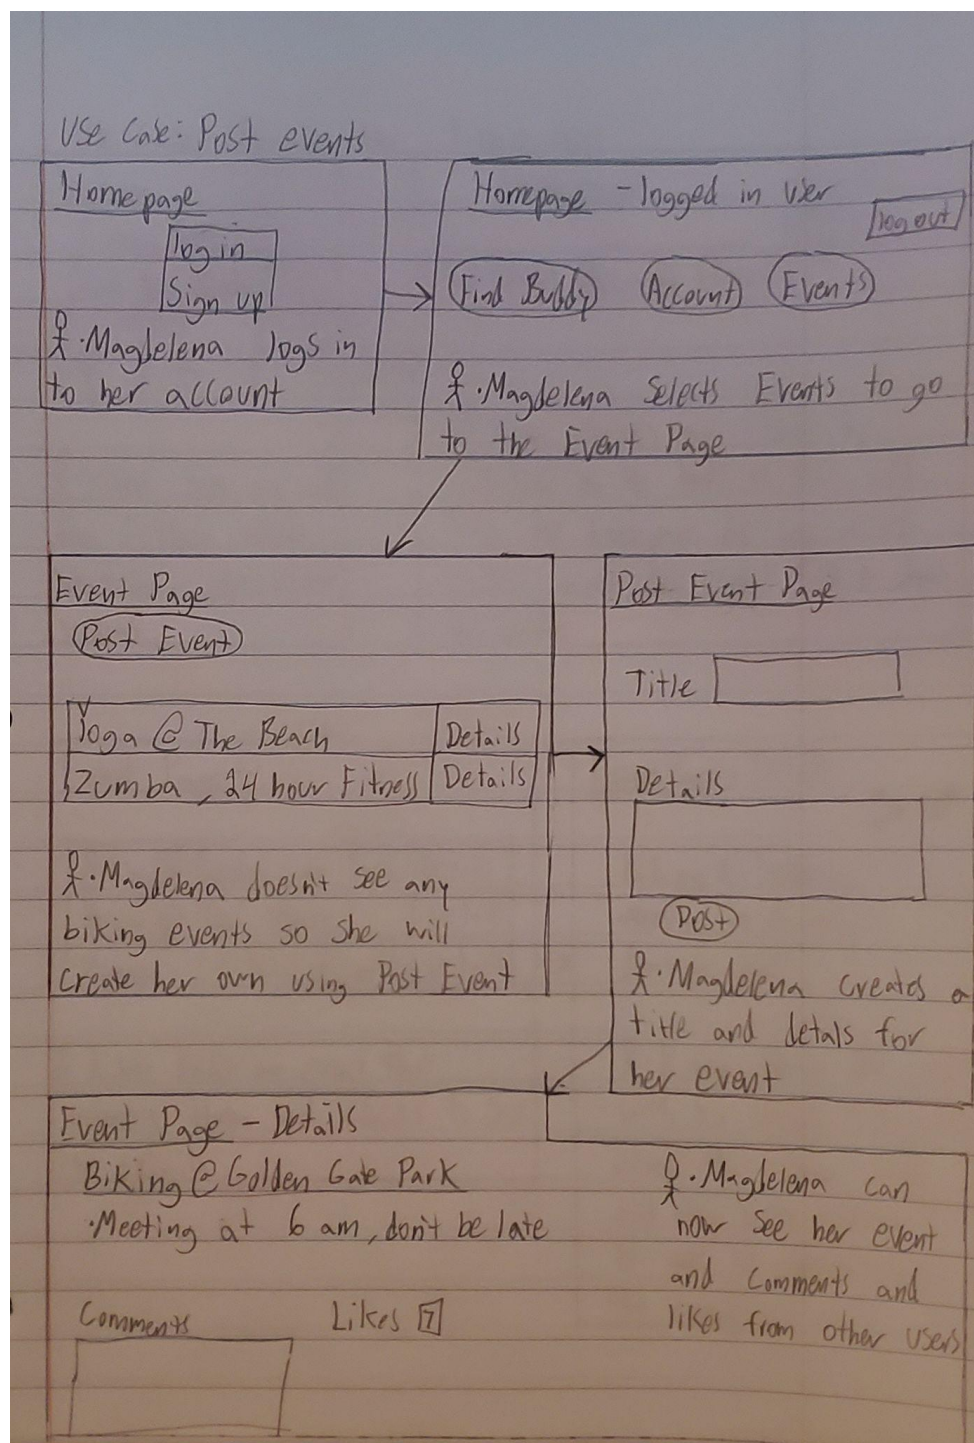 Use Case: Post events
Homepage
log in
Sign up
·Magdelena logs in
to her account
Homepage - logged in user
log out
Find Buddy
Account
Events
·Magdelena Selects Events to go
to the Event Page
Event Page
Post Event
Yoga @ The Beach
Details
Zumba, 24 hour Fitness
Details
·Magdelena doesn't see any
biking events so she will
create her own using Post Event
Post Event Page
Title
Details
Post
·Magdelena creates a
title and detals for
her event
Event Page - Details
Biking @ Golden Gate Park
·Meeting at 6 am, don't be late
Comments
Likes 7
·Magdelena can
now see her event
and comments and
likes from other users